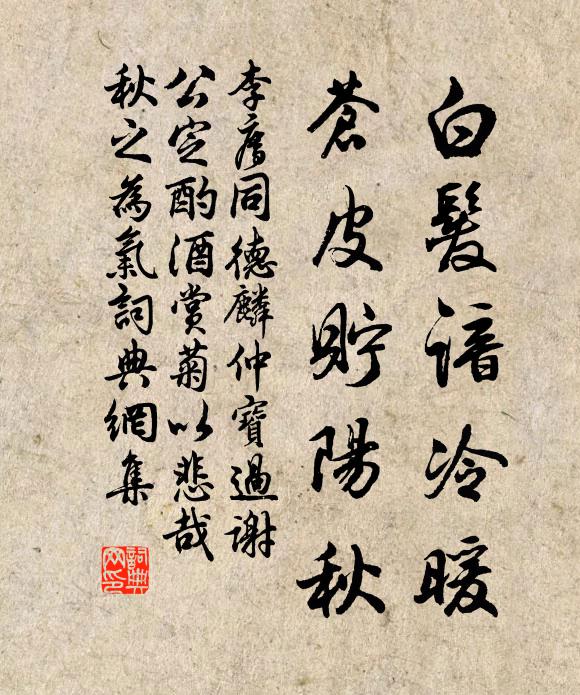 白髮諳冷暖
蒼皮貯陽秋
李廌同德麟仲寶過謝
公定酌酒賞菊以悲哉
秋之為氣詞典網集
詞典网印